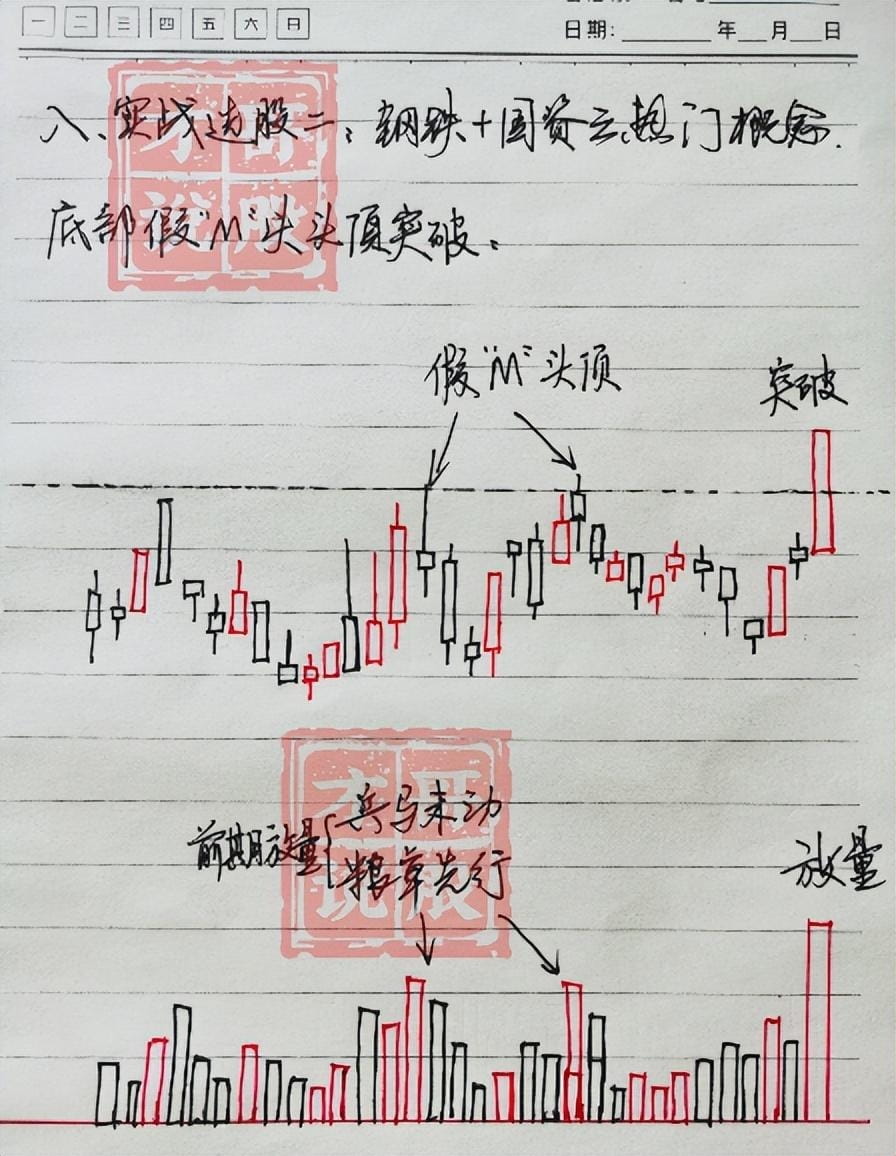 一 二 三 四 五 六 日
日期: 年 月 日
八、实战选股二:钢铁+国资云热门概念.
底部假"M"头头顶突破。
假"M"头顶
突破
前期放量{兵马未动
粮草先行
放量